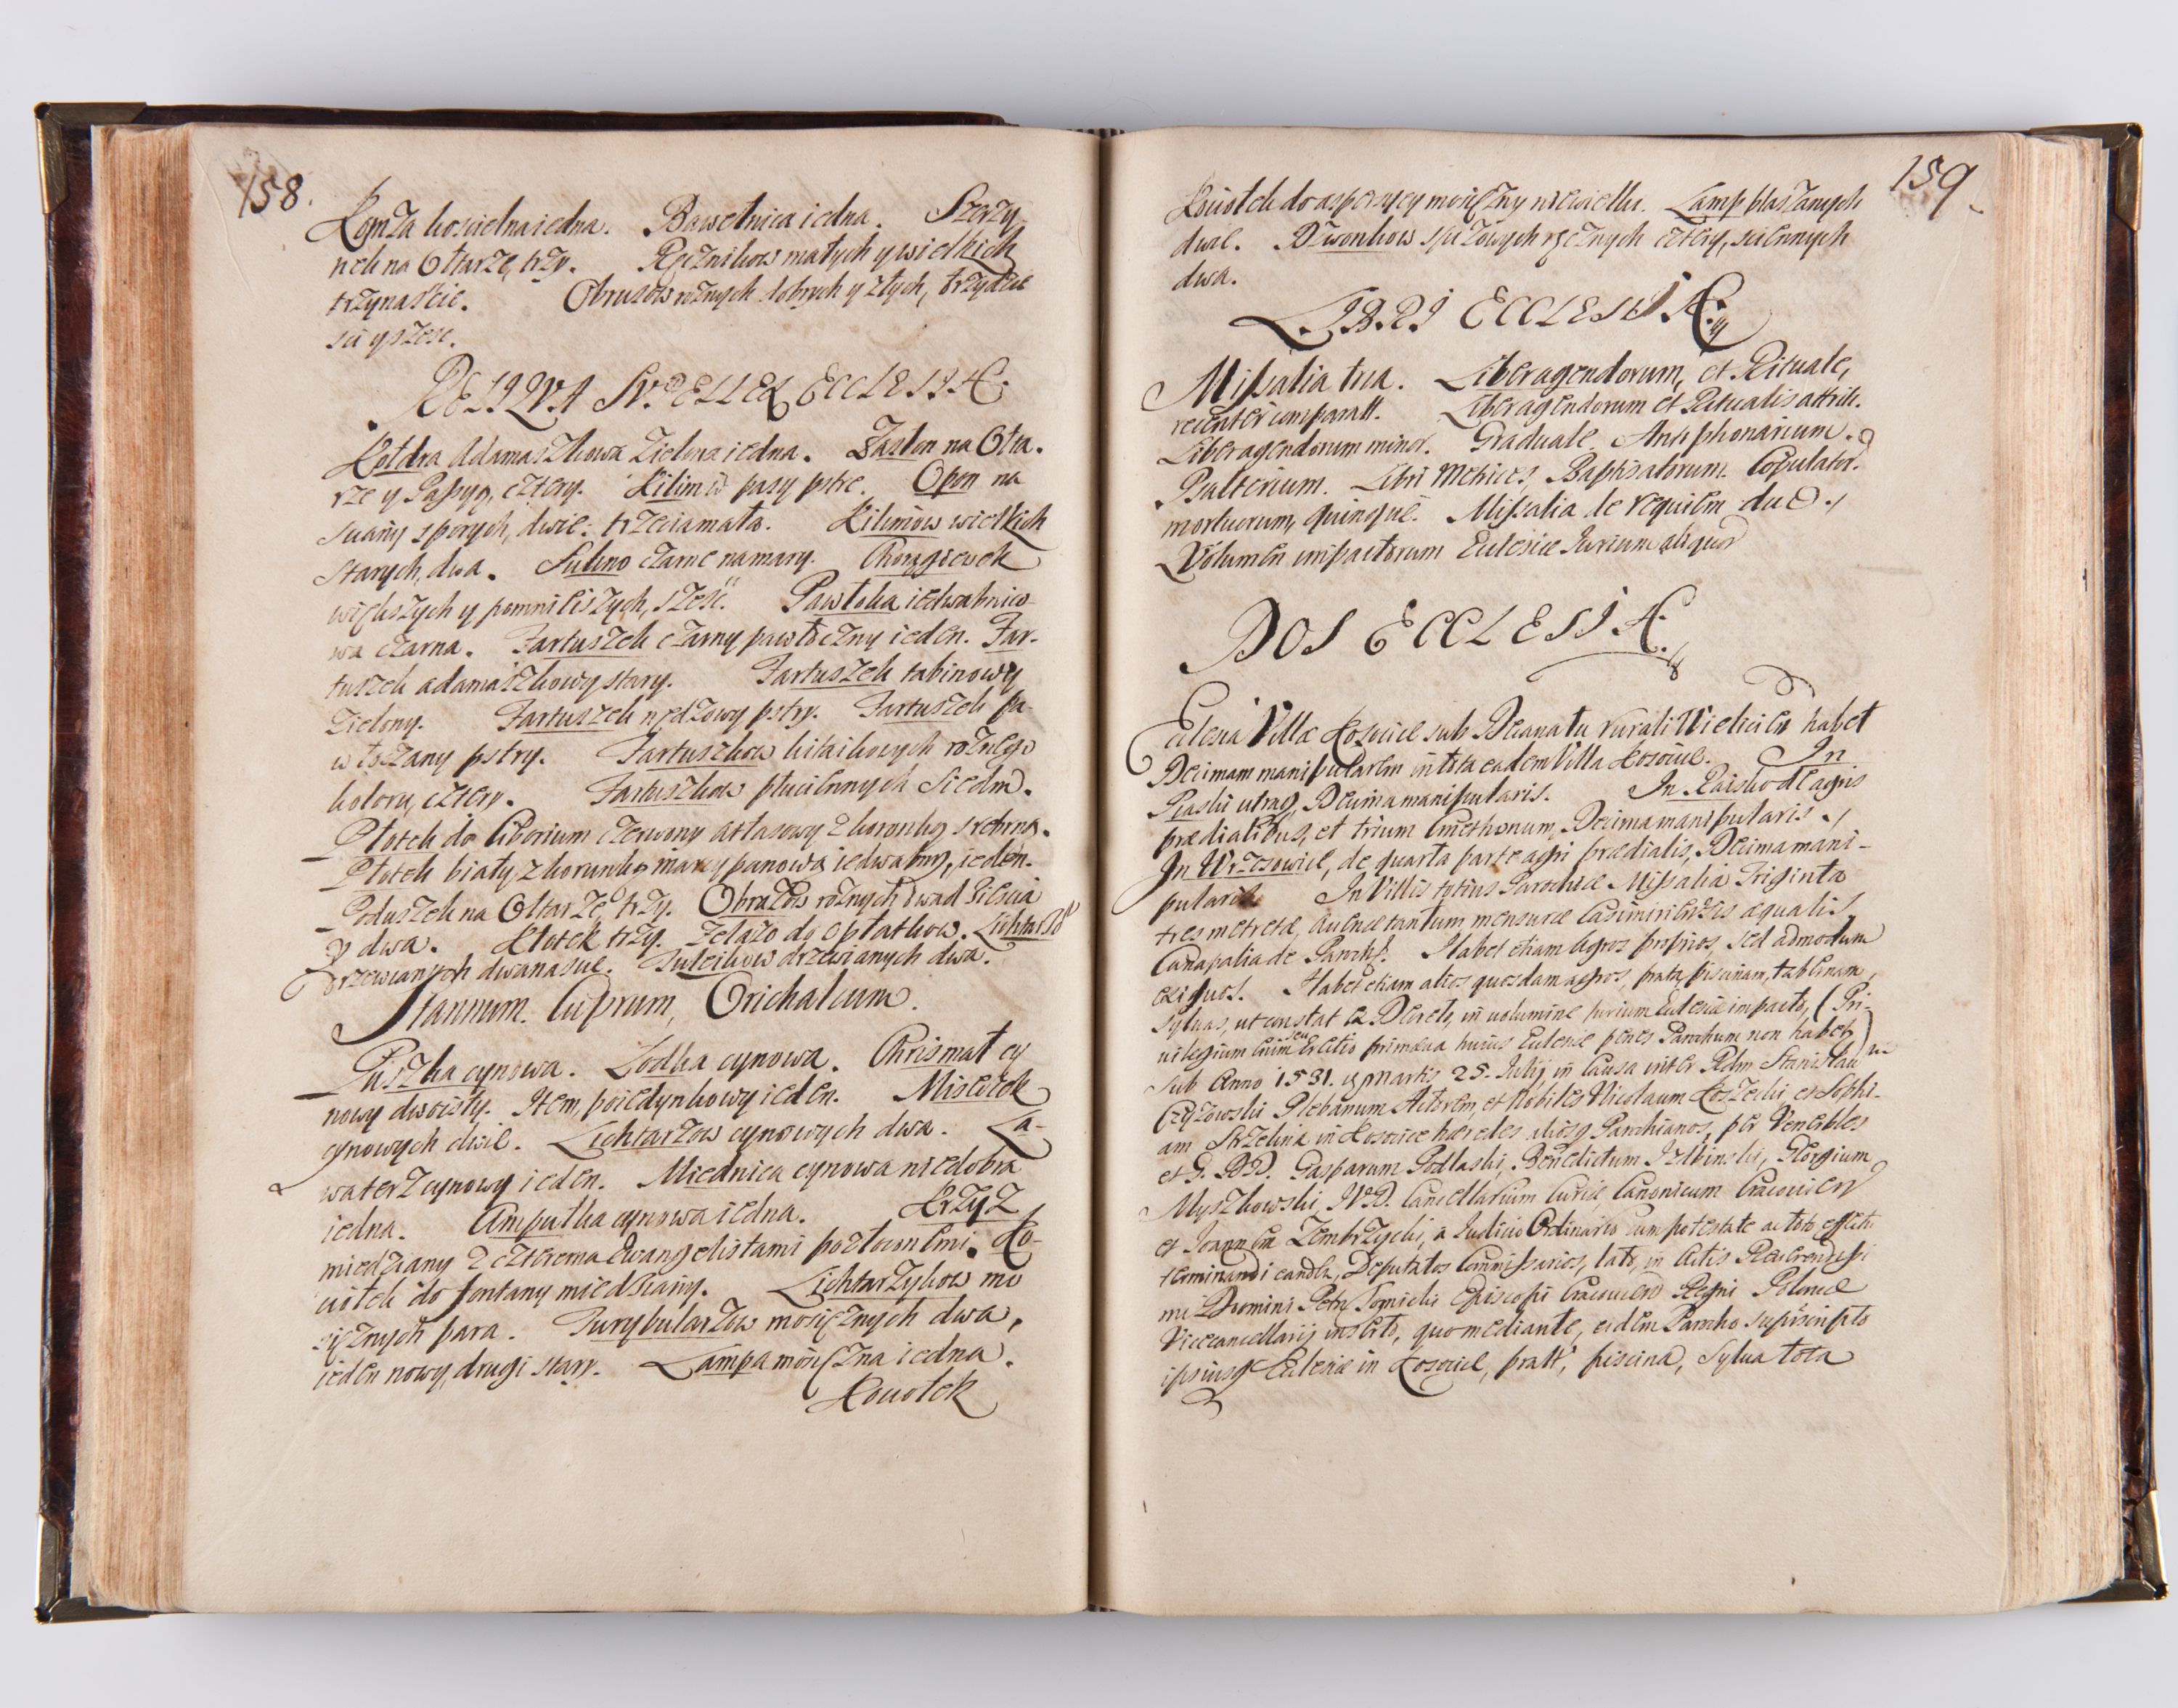 158.
Komza koscielna iedna. Bawełnica iedna. Szerzy-
nek na Ołtarze, trzy. Ręcznikow małych y wielkich
trzynascie. Obrusow roznych dobrych y złych, trzydzie
sci y szesc.
RESIDVA SVPELLEX ECCLESIÆ.
Kołdra Adamaszkowa Zielona iedna. Zasłon na Ołta-
rze y Passyą, cztery. Kilim w pasy pstre. Opon na
sciany sporych, dwie: trzecia mała. Kilimow wielkich
starych, dwa. Sukno czarne na mary. Chorągiewek
większych y pomnieiszych, szesc. Pawłoka iedwabnico-
wa czarna. Fartuszek czarny pawłoczny ieden. Far-
tuszek adamaszkowy stary. Fartuszek tabinowy
Zielony. Fartuszek pstry. Fartuszek pa-
włoczany pstry. Fartuszkow kitaikowych roznego
koloru, cztery. Fartuszkow płuciennych Siedm.
Płotek do Ciborium czerwony atłasowy z koronką srebrną.
Płotek biały z koronką marcypanową iedwabny, ieden.
Poduszek na Ołtarze, trzy. Obrazow roznych dwadziescia
y dwa. Kłotek trzy. Zelazo do opłatkow. Lichtarzo
drzewianych dwanascie. Pulcikow drzewianych dwa.
Stannum. Cuprum, Orichalcum.
Puszka cynowa. Łodka cynowa. Chrismat cy
nowy dwoisty. Item, poiedynkowy ieden. Miseczek
cynowych dwie. Lichtarzow cynowych dwa. La-
waterz cynowy ieden. Miednica cynowa niedobra
iedna. Ampułka cynowa iedna. Krzyz
miedziany z czterema Ewangelistami pozłoconemi. Ko-
ciołek do fontany miedziany. Lichtarzykow mo
siężnych para. Turybularzow mosiężnych dwa,
ieden nowy, drugi stary. Lampa mosiężna iedna.
Kociołek
159
Kociołek do aspersyey mosiężny niewielki. Lamp blaszanych
dwie. Dzwonkow spizowych ręcznych cztery, sciennych
dwa.
LIBRI ECCLESIÆ.
Missalia tria. Liber agendorum, et Rituale,
recenter comparatt. Liber agendorum et Ritualis attrit.
Liber agendorum minor. Graduale. Antiphonarium.
Psalterium. Libri Metrices Baptisatorum. Copulator.
mortuorum, quinque. Missalia de requiem duo.
Volumen impactorum Ecclesiæ Iurium aliquod
DOS ECCLESIÆ.
Ecclesia Villæ Kosocice sub Decanatu rurali Wielicien habet
Decimam manipularem in tota eadem Villa Kosocice. In
Piaski utraq, Decima manipularis. In Raisko de agris
prædialibus, et trium Cmethonum, Decima manipularis.
In Wrzosowice, de quarta parte agri prædialis, Decima mani-
pularis. In Villis totius Parochiæ Missalia Triginta
tres metretæ, Auenæ tantum mensuræ Casimirien̄sis æqualis,
Canapalia de Paroch. Habet etiam Agros proprios, sed admodum
exiguos. Habet etiam alios quosdam agros, prata, piscinam, tabernam,
syluas, ut constat ex Decreto, in uolumine iurium Ecclesiæ impacto, (Pri-
uilegium enim seu Erectio primæua huius Ecclesiæ penes Parochum non habet)
sub Anno 1531. Martis 25. Iulij in Causa inter Rdm Stanislau m
Czyzowski Plebanum Actorem, et Nobiles Nicolaum Koszecki, et Sophi-
am Strzelina in Kosocice hæredes aliosq Parochianos, per Venerbles
et G. DD. Gasparum Podlaski, Benedictum Izdbinski, Georgium
Myszkowski, I.V.D. Cancellarium Curiæ, Canonicum Cracouien
et Ioannem Zembrzycki, a Iudicio Ordinario cum potestate ac toto effectu
terminandi eandem, Deputatos Commissarios, lato, in Actis Reuerendissi
mi Domini Petri Tomicki Episcopi Cracouien Regni Poloniæ
Vicecancellarij inserto, quo mediante, eidem Parocho suprascripto
ipsiusq Ecclesiæ in Kosocice, pratt, piscina, Sylua tota